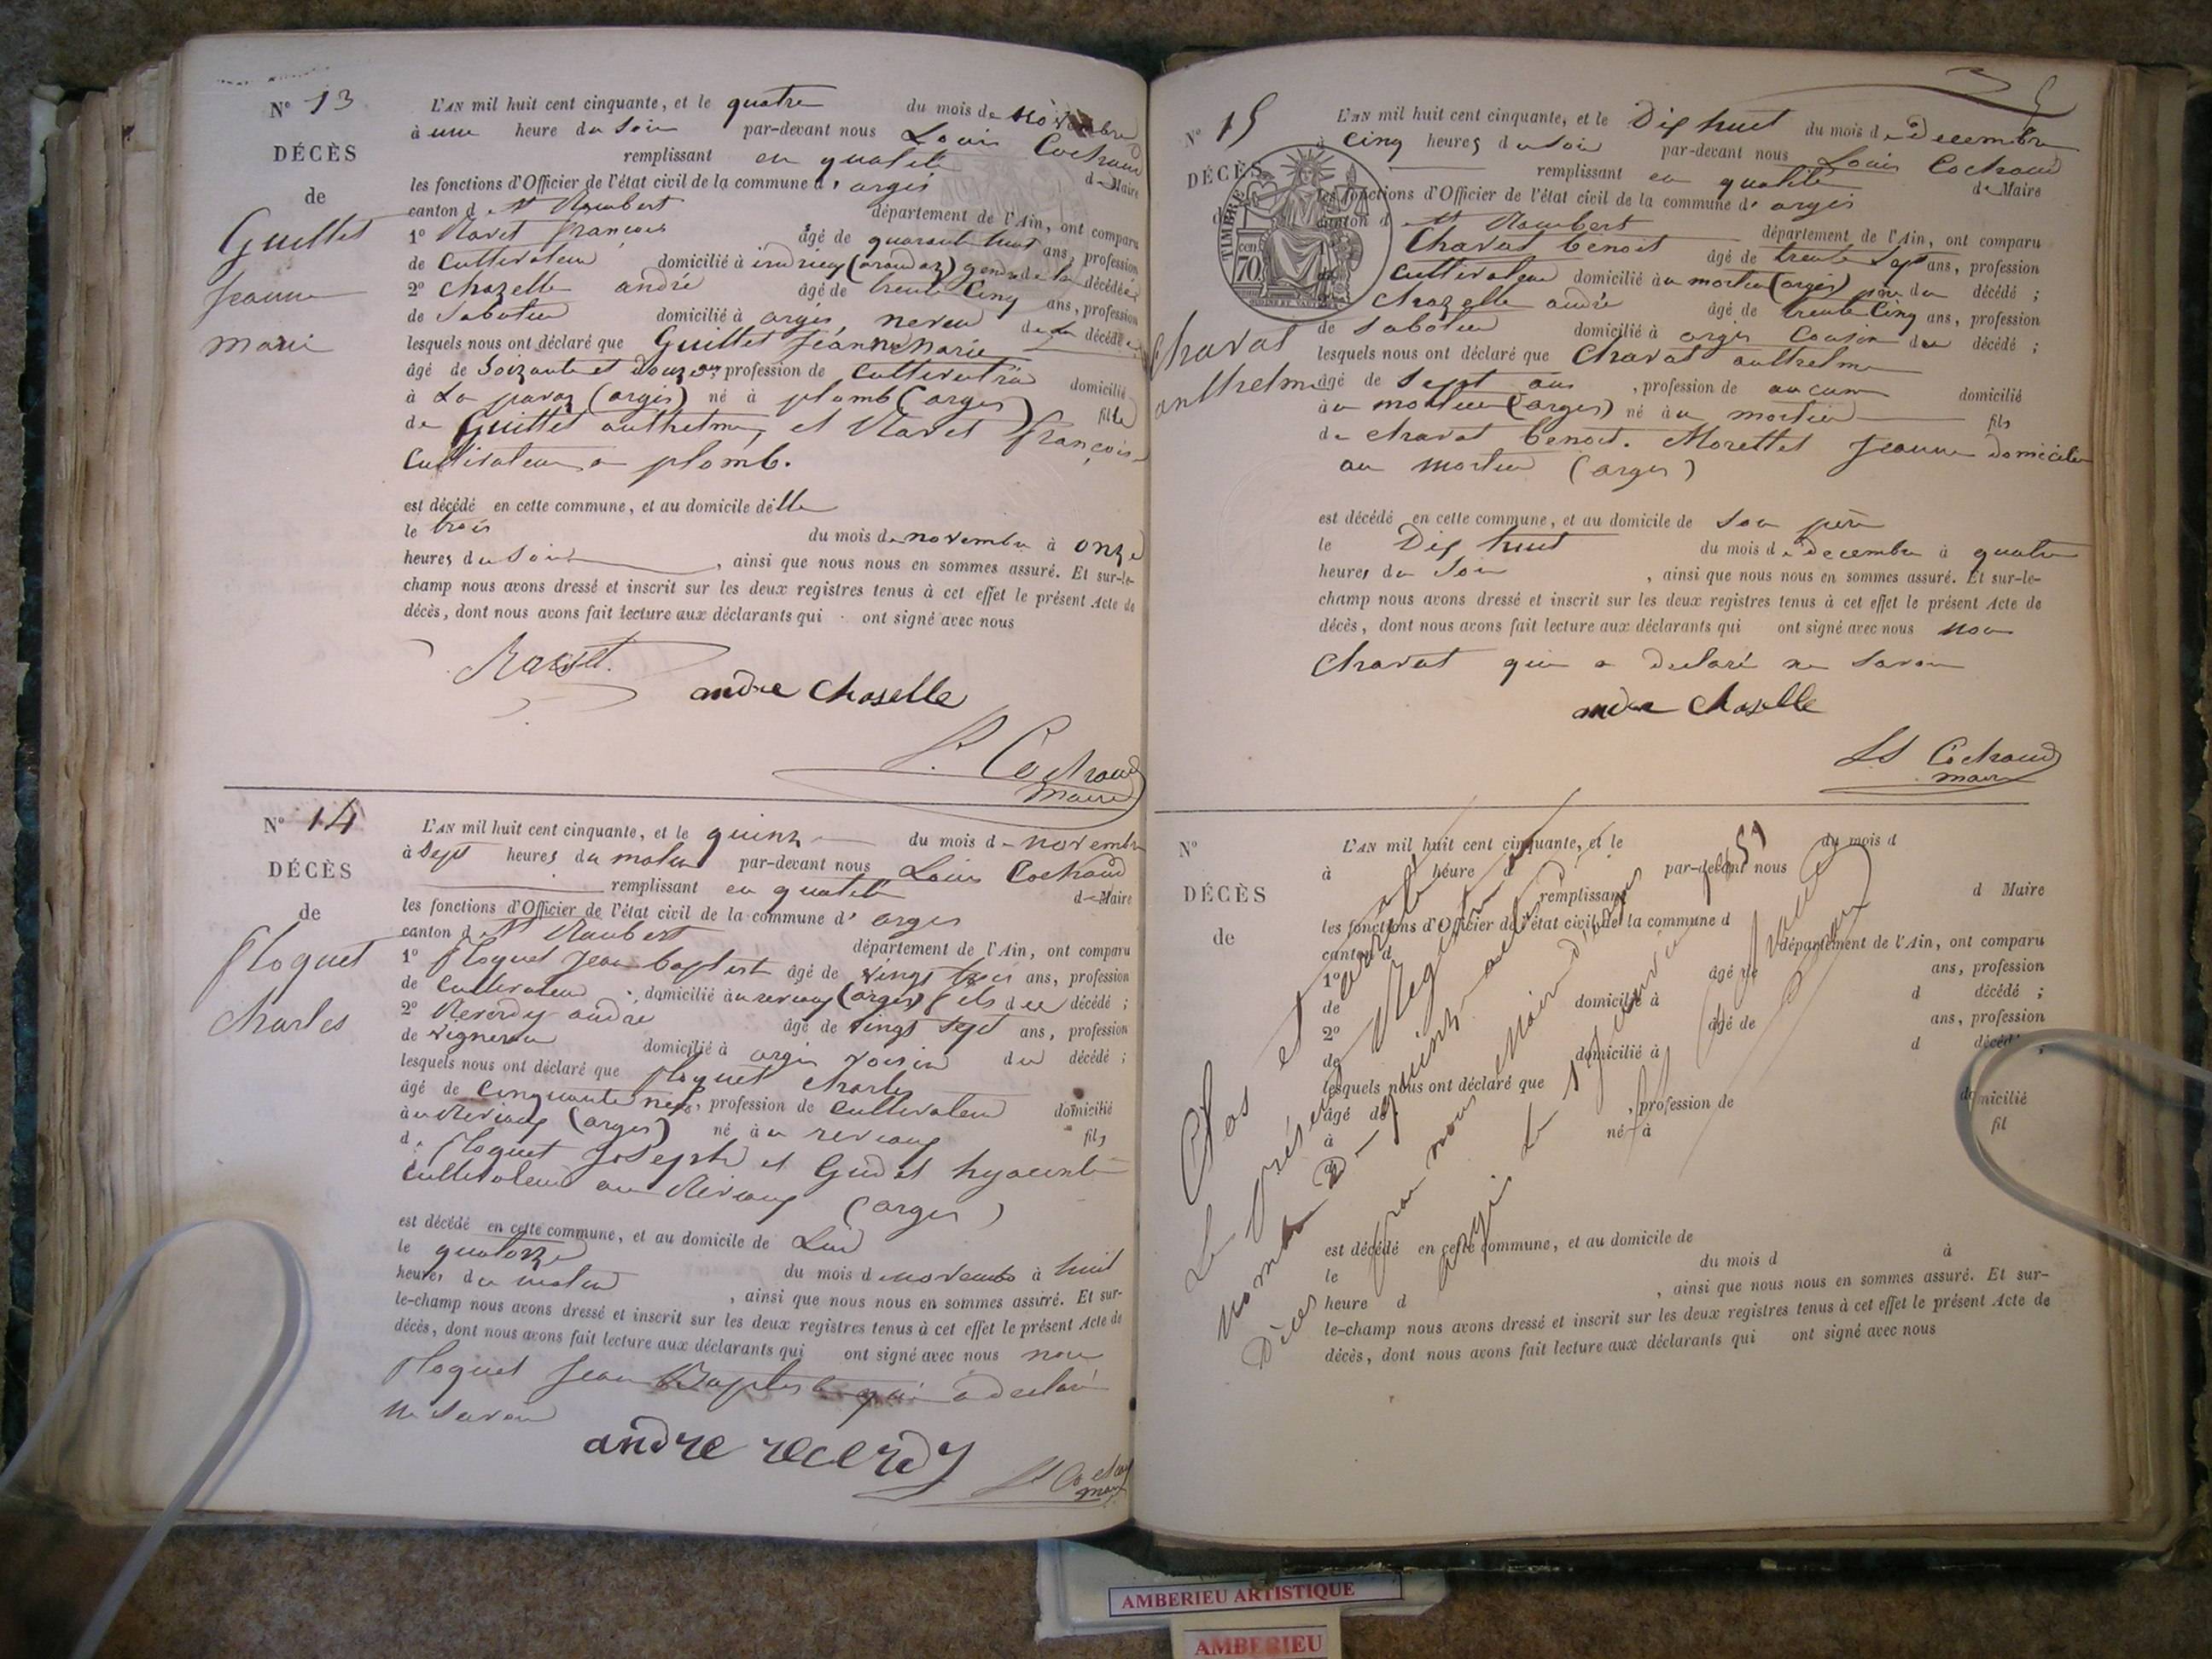 N° 13
DÉCÈS
de
Guillet
Jeanne
Marie
L'AN mil huit cent cinquante, et le quatre du mois de novembre
à une heure du Soir par-devant nous Louis Cochand
remplissant en qualité de Maire
les fonctions d'Officier de l'état civil de la commune d' arges
canton de St Rambert département de l'Ain, ont comparu
1° Ravet françois âgé de quarante huit ans, profession
de Cultivateur domicilié à indrieu (arandaz) gendre de la décédée
2° Chazelle andré âgé de trente Cinq ans, profession
de Sabotier domicilié à argis, neveu de la décédée
lesquels nous ont déclaré que Guillet Jeanne Marie
âgé de Soixante et douze ans, profession de Cultivatrice domicilié
à La (argis) né à plomb (arges) fille
de Guillet anthelme, et Ravet françoise
Cultivateur a plomb.
est décédé en cette commune, et au domicile delle
le trois du mois de novembre à onze
heures du Soir , ainsi que nous nous en sommes assuré. Et sur-le-
champ nous avons dressé et inscrit sur les deux registres tenus à cet effet le présent Acte de
décès, dont nous avons fait lecture aux déclarants qui ont signé avec nous
Ravet
andre Choselle
L. Cochand
Maire
N° 14
DÉCÈS
de
floquet
Charles
L'AN mil huit cent cinquante, et le quinze du mois de novembre
à Sept heures du matin par-devant nous Louis Cochand
remplissant en qualité de Maire
les fonctions d'Officier de l'état civil de la commune d' arges
canton de St Rambert département de l'Ain, ont comparu
1° floquet Jean baptiste âgé de vingt trois ans, profession
de Cultivateur domicilié au (arges) fils du décédé ;
2° Reverdy andré âgé de vingt sept ans, profession
de vigneron domicilié à argis voisin du décédé ;
lesquels nous ont déclaré que floquet Charles
âgé de Cinquante neuf, profession de Cultivateur domicilié
au (arges) né au fils
de floquet Joseph et Gudet hyacinte
Cultivateur au (arges)
est décédé en cette commune, et au domicile de Lui
le quatorze du mois de novembre à huit
heures du matin , ainsi que nous nous en sommes assuré. Et sur-
le-champ nous avons dressé et inscrit sur les deux registres tenus à cet effet le présent Acte de
décès, dont nous avons fait lecture aux déclarants qui ont signé avec nous non
floquet Jean Baptiste qui a declaré
ne Savoir
andre recerdy
N° 15
DÉCÈS
TIMBRE
cen
70
Chavat
anthelme
L'AN mil huit cent cinquante, et le Dix huit du mois de decembre
à Cinq heures du Soir par-devant nous Louis Cochand
remplissant en qualité de Maire
les fonctions d'Officier de l'état civil de la commune d' arges
canton d St Rambert département de l'Ain, ont comparu
Chavat benoit âgé de trente Sept ans, profession
Cultivateur domicilié au mortier (argis) père du décédé ;
Chazelle andré âgé de trente Cinq ans, profession
de Sabotier domicilié à argis Cousin du décédé ;
lesquels nous ont déclaré que Chavat anthelme
âgé de Sept ans , profession de aucune domicilié
au mortier (arges) né au mortier fils
de Chavat benoit. Morettet Jeanne domicilié
au mortier (arges)
est décédé en cette commune, et au domicile de Son père
le Dix huit du mois de decembre à quatre
heures du Soir , ainsi que nous nous en sommes assuré. Et sur-le-
champ nous avons dressé et inscrit sur les deux registres tenus à cet effet le présent Acte de
décès, dont nous avons fait lecture aux déclarants qui ont signé avec nous non
Chavat qui a declaré ne Savoir
andre Choselle
Ls Cochand
maire
N°
DÉCÈS
de
L'AN mil huit cent cinquante, et le du mois d
à heure d par-devant nous
remplissant d Maire
les fonctions d'Officier de l'état civil de la commune d
canton d département de l'Ain, ont comparu
1° âgé de ans, profession
de domicilié à d décédé ;
2° âgé de ans, profession
de domicilié à d décédé ;
lesquels nous ont déclaré que
âgé de , profession de domicilié
à né à fil
d
est décédé en cette commune, et au domicile de
le du mois d à
heure d , ainsi que nous nous en sommes assuré. Et sur-
le-champ nous avons dressé et inscrit sur les deux registres tenus à cet effet le présent Acte de
décès, dont nous avons fait lecture aux déclarants qui ont signé avec nous
Clos et arrêté
Le Présent Registre au
nombre de quinze actes
Décès par nous Maire d'arges
argis le 1 Janvier 1851
AMBERIEU ARTISTIQUE
AMBERIEU